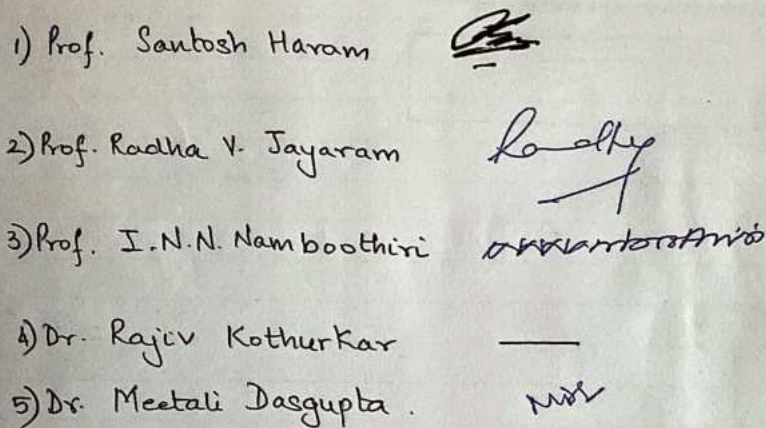 1) Prof. Santosh Haram
2) Prof. Radha V. Jayaram
3) Prof. I.N.N. Namboothiri
4) Dr. Rajiv Kothurkar —
5) Dr. Meetali Dasgupta.